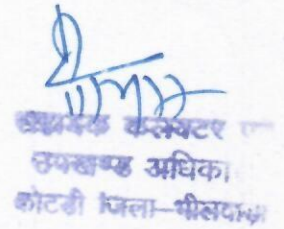 सहायक कलक्टर ए
उपखण्ड अधिका
कोटडी जिला-भीलवाड़ा